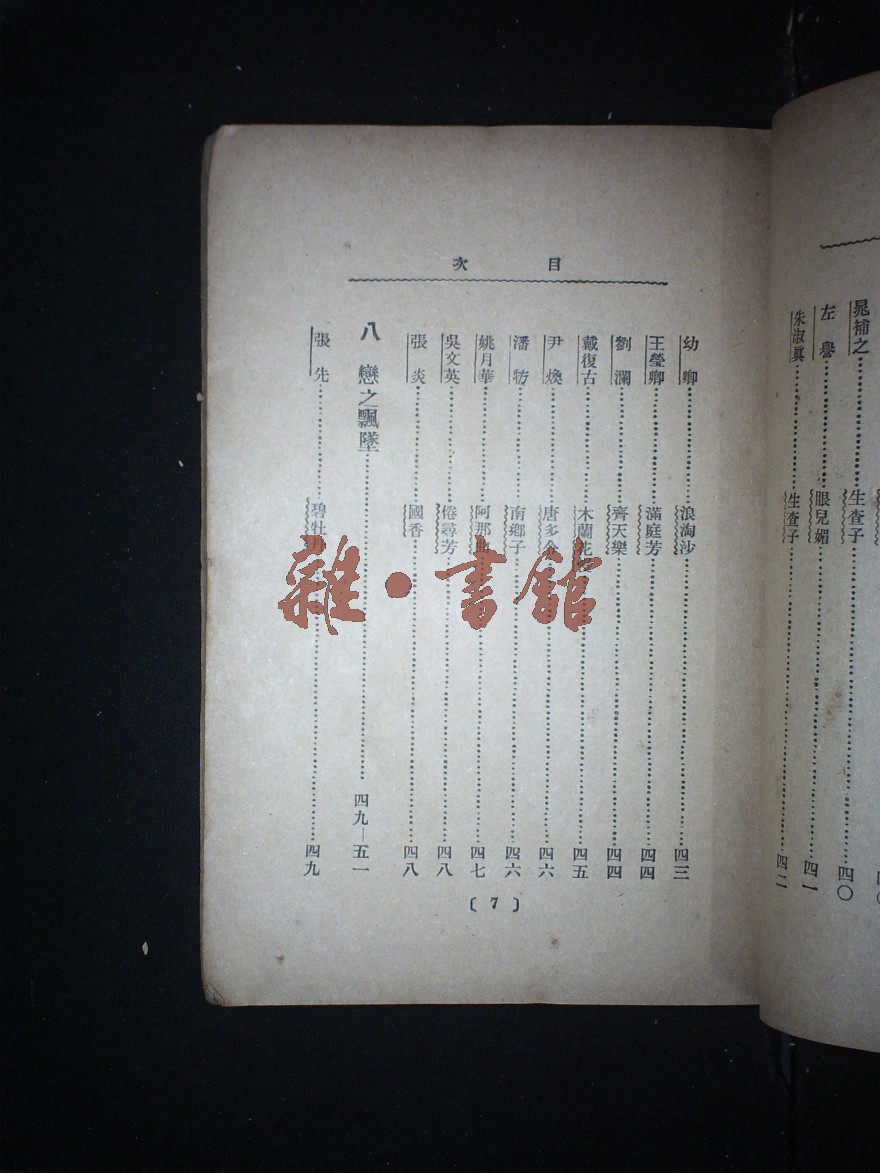 晁補之……生查子……四〇
左譽……眼兒媚……四一
朱淑眞……生查子……四二
目次
幼卿……浪淘沙……四三
王瑩卿……滿庭芳……四四
劉瀾……齊天樂……四四
戴復古……木蘭花慢……四五
尹煥……唐多令……四六
潘牥……南鄉子……四六
姚月華……阿那曲……四七
吳文英……倦尋芳……四八
張炎……國香……四八
八 戀之飄墜……四九—五一
張先……碧牡丹……四九
〔7〕
雜·書館